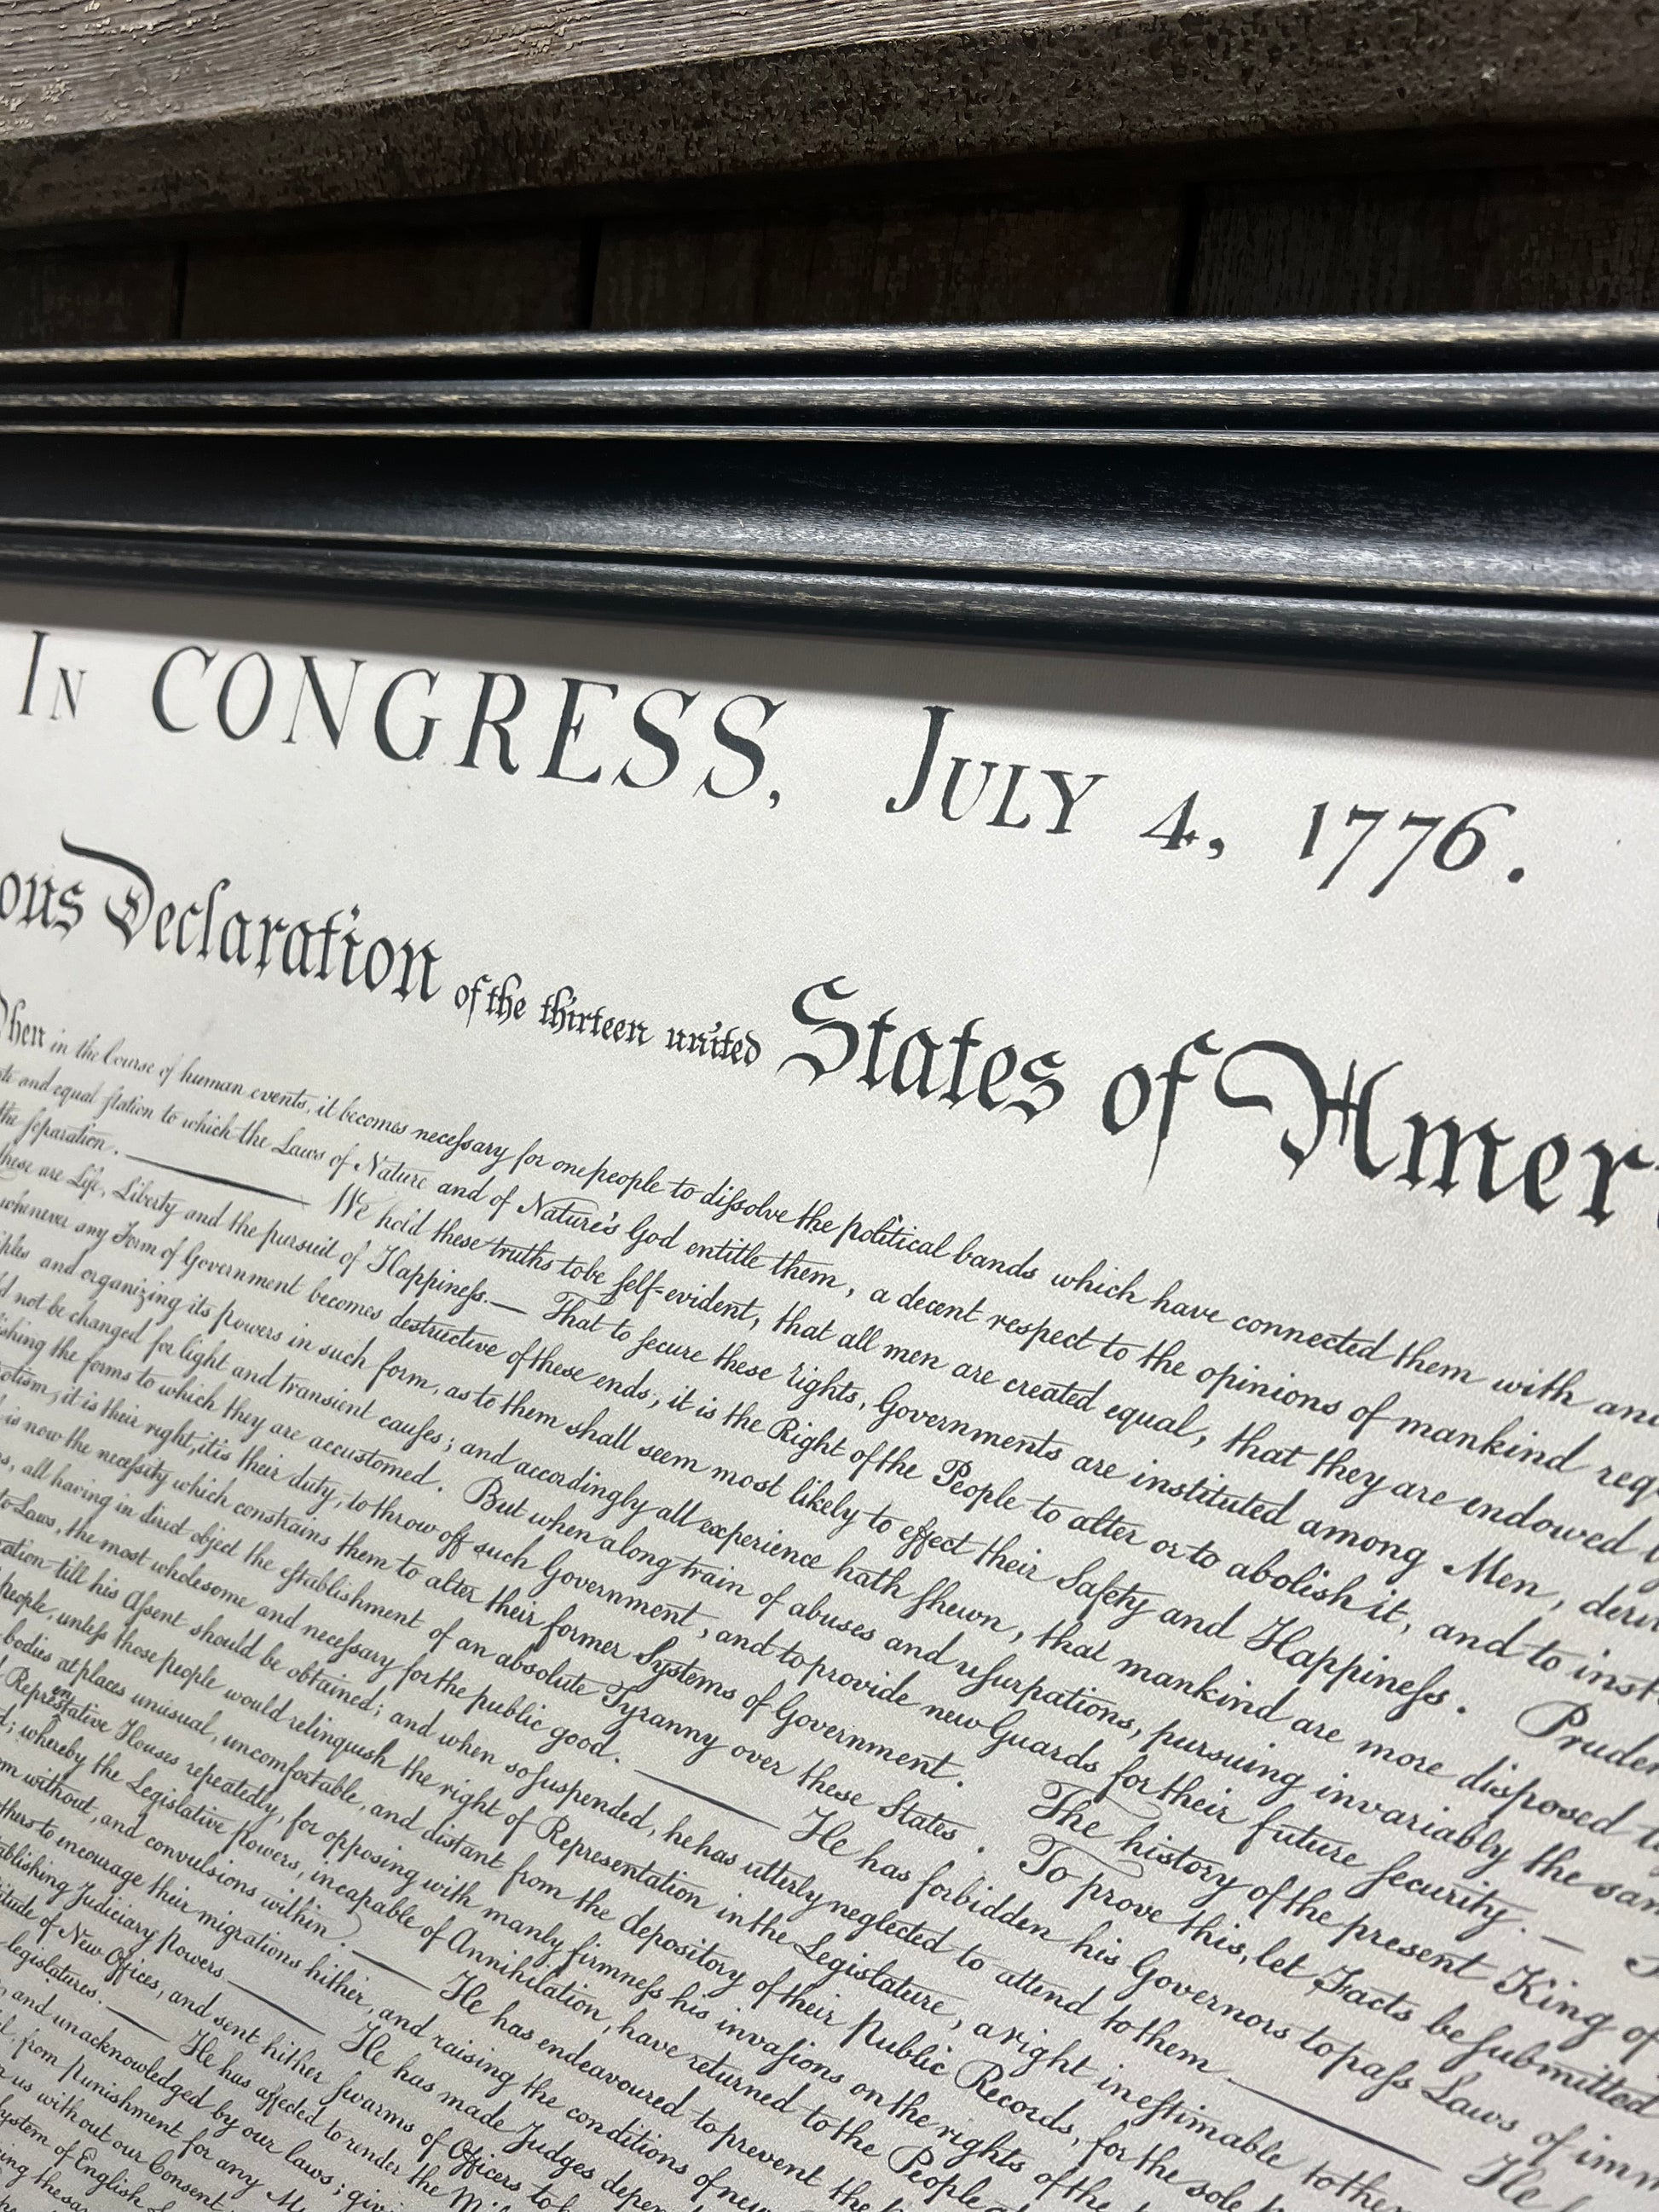 In CONGRESS, July 4, 1776.
Declaration of the thirteen united States of Amer
in the Course of human events, it becomes necessary for one people to dissolve the political bands which have connected them with
and equal station to which the Laws of Nature and of Nature's God entitle them, a decent respect to the opinions of mankind
the separation. —— We hold these truths to be self-evident, that all men are created equal, that they are endowed
these are Life, Liberty and the pursuit of Happiness.— That to secure these rights, Governments are instituted among Men,
whenever any Form of Government becomes destructive of these ends, it is the Right of the People to alter or to abolish it, and to
and organizing its powers in such form, as to them shall seem most likely to effect their Safety and Happiness.
not be changed for light and transient causes; and accordingly all experience hath shewn, that mankind are more disposed
the forms to which they are accustomed. But when a long train of abuses and usurpations, pursuing invariably the
it is their right, it is their duty, to throw off such Government, and to provide new Guards for their future security.—
is now the necessity which constrains them to alter their former Systems of Government. The history of the present King of
all having in direct object the establishment of an absolute Tyranny over these States. To prove this, let Facts be submitted
to Laws, the most wholesome and necessary for the public good. —— He has forbidden his Governors to pass Laws of
till his Assent should be obtained; and when so suspended, he has utterly neglected to attend to them. —— He
people, unless those people would relinquish the right of Representation in the Legislature, a right inestimable to
bodies at places unusual, uncomfortable, and distant from the depository of their Public Records, for the sole
Representative Houses repeatedly, for opposing with manly firmness his invasions on the rights of the
whereby the Legislative powers, incapable of Annihilation, have returned to the People
without, and convulsions within. —— He has endeavoured to prevent the
to encourage their migrations hither, and raising the conditions of new
Judiciary powers. —— He has made Judges
of New Offices, and sent hither swarms of Officers to
legislatures. —— He has affected to render the
and unacknowledged by our laws;
from Punishment for any
us without our Consent
System of English